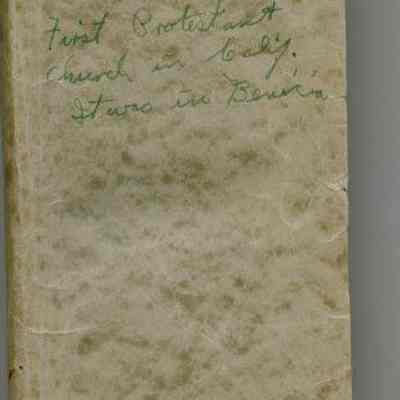 First Protestant
Church in Calif.
It was in Benicia